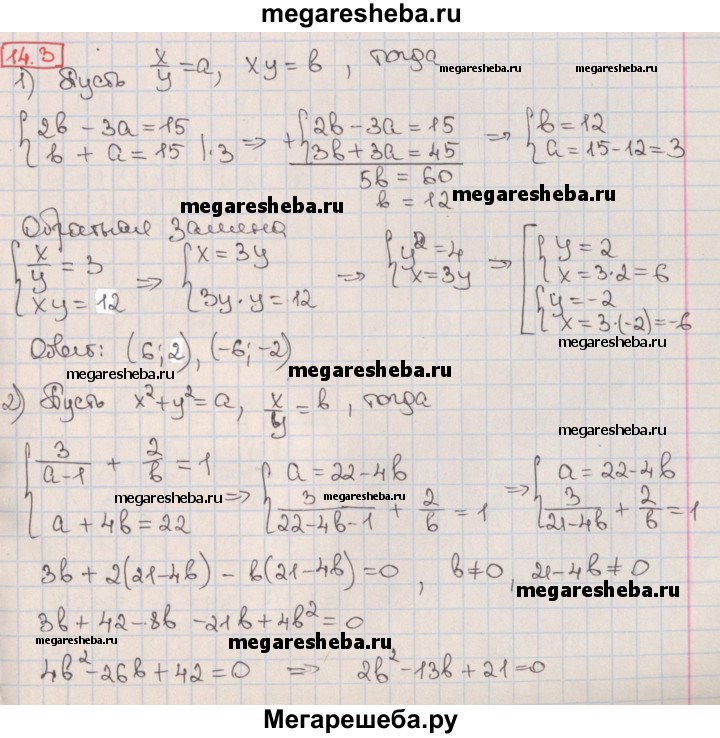 megaresheba.ru
14.3
1) Пусть x/y = a, xy = b, тогда
megaresheba.ru megaresheba.ru
{2b − 3a = 15 {2b − 3a = 15 {b = 12
{b + a = 15 |·3 ⇒ +{3b + 3a = 45 ⇒ {a = 15−12 = 3
5b = 60
megaresheba.ru b = 12 megaresheba.ru
Обратная замена
{x/y = 3 {x = 3y {y² = 4 [{y = 2
{xy = 12 ⇒ {3y·y = 12 ⇒ {x = 3y ⇒ {x = 3·2 = 6
{y = −2
{x = 3·(−2) = −6
Ответ: (6; 2), (−6; −2)
megaresheba.ru megaresheba.ru
2) Пусть x²+y² = a, x/y = b, тогда
megaresheba.ru
{3/(a−1) + 2/b = 1 {a = 22−4b {a = 22−4b
megaresheba.ru megaresheba.ru
{a + 4b = 22 ⇒ {3/(22−4b−1) + 2/b = 1 ⇒ {3/(21−4b) + 2/b = 1
3b + 2(21−4b) − b(21−4b) = 0, b≠0, 21−4b ≠ 0
megaresheba.ru
3b + 42 − 8b − 21b + 4b² = 0
megaresheba.ru megaresheba.ru
4b² − 26b + 42 = 0 ⇒ 2b² − 13b + 21 = 0
Мегарешеба.ру